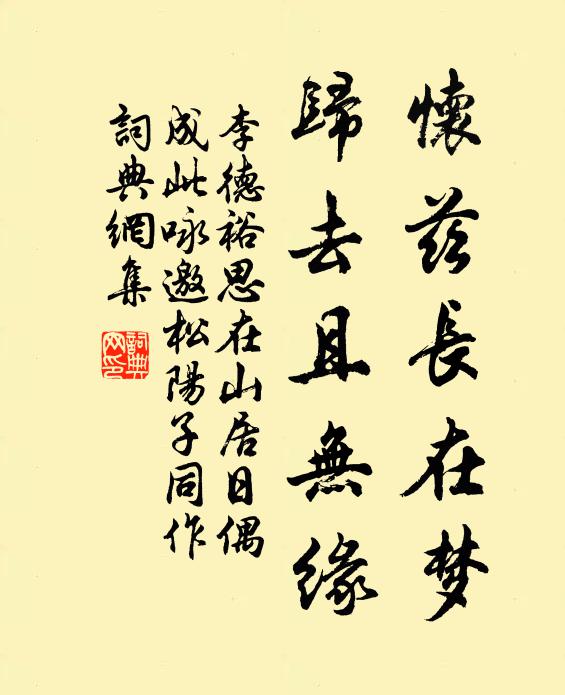 懷茲長在梦
歸去且無緣
李德裕思在山居日偶
成此咏邀松陽子同作
詞典網集
詞典网印